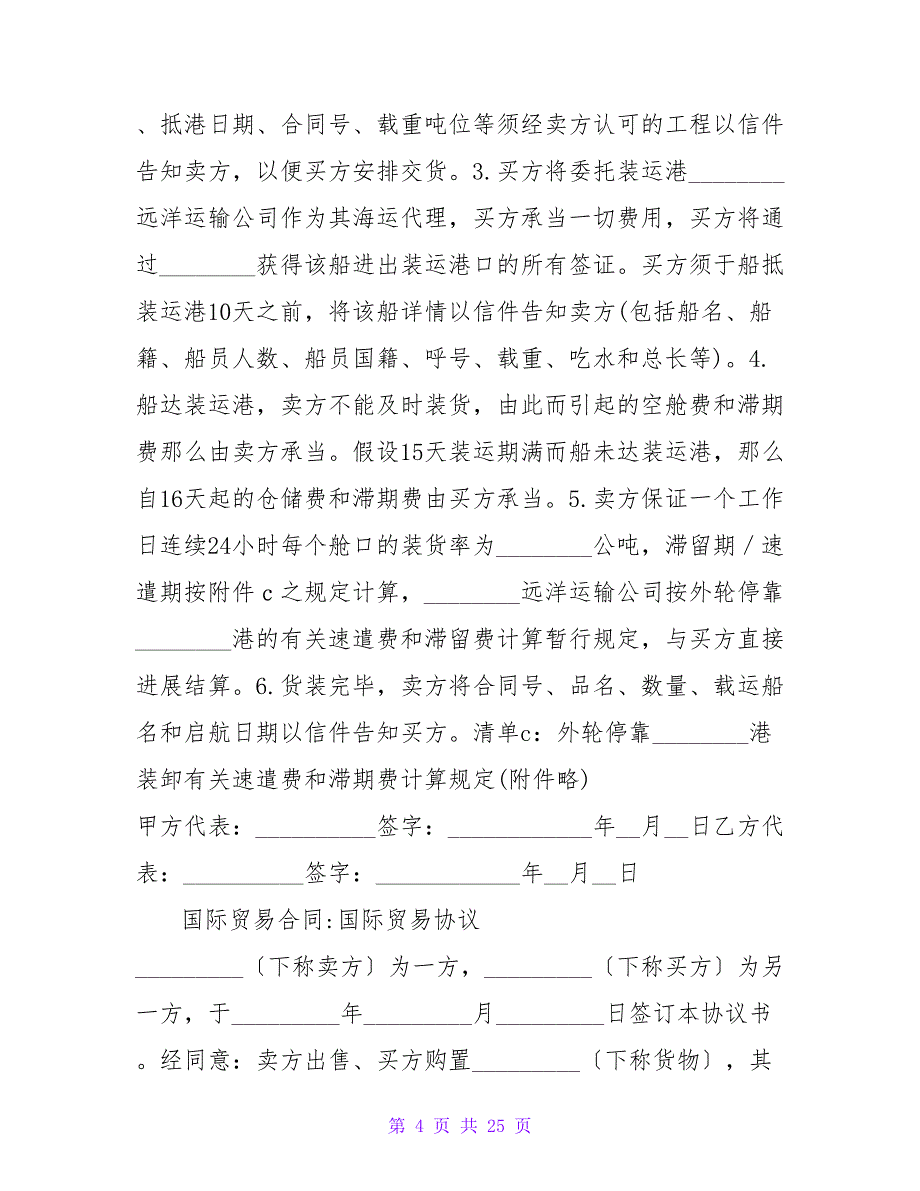 、抵港日期、合同号、载重吨位等须经卖方认可的工程以信件
告知卖方，以便买方安排交货。3.买方将委托装运港________
远洋运输公司作为其海运代理，买方承当一切费用，买方将通
过________获得该船进出装运港口的所有签证。买方须于船抵
装运港10天之前，将该船详情以信件告知卖方(包括船名、船
籍、船员人数、船员国籍、呼号、载重、吃水和总长等)。4.
船达装运港，卖方不能及时装货，由此而引起的空舱费和滞期
费那么由卖方承当。假设15天装运期满而船未达装运港，那么
自16天起的仓储费和滞期费由买方承当。5.卖方保证一个工作
日连续24小时每个舱口的装货率为________公吨，滞留期／速
遣期按附件ｃ之规定计算，________远洋运输公司按外轮停靠
________港的有关速遣费和滞留费计算暂行规定，与买方直接
进展结算。6.货装完毕，卖方将合同号、品名、数量、载运船
名和启航日期以信件告知买方。清单c：外轮停靠________港
装卸有关速遣费和滞期费计算规定(附件略)
甲方代表：__________签字：____________年__月__日乙方代
表：__________签字：____________年__月__日
国际贸易合同:国际贸易协议
_________〔下称卖方〕为一方，_________〔下称买方〕为另
一方，于_________年_________月_________日签订本协议书
。经同意：卖方出售、买方购置_________〔下称货物〕，其
第 4 页 共 25 页